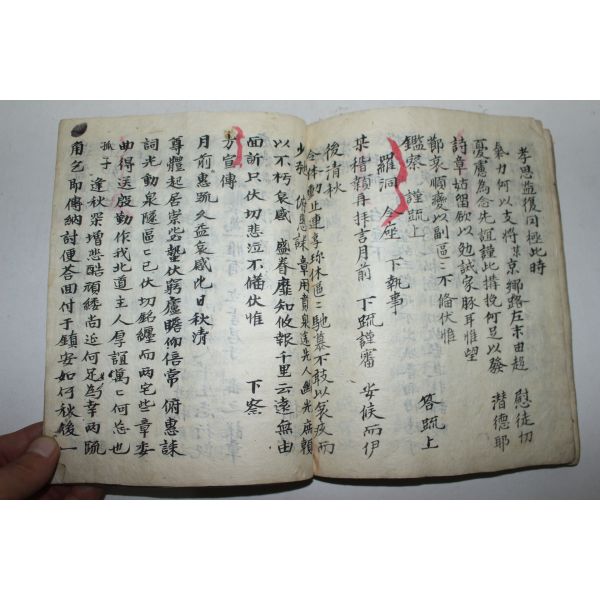 孝思益復罔極此時 慰徒切
氣力何以支將某京鄉路左末由趨
憂慮為念先誼謹此搆挽何足以發 潛德耶
詩章姑留欲以勉誠家豚耳惟望
節哀順變以副區〻不備伏惟
鑑察 謹疏上 答疏上
羅洞 令座 下執事
某稽顙再拜言月前 下疏謹審 安候而伊
後清秋
令体動止連專珍休區〻馳慕不敢以衰疚而
少弛 俯惠誄章用賁泉遂先人幽光庶賴
以不朽哀感 盛眷靡知攸報千里云遠無由
面訴只伏切悲泣不備伏惟 下察
方宣傳
月前惠疏久益哀感比日秋清
尊體起居崇毖蟄伏窮廬瞻仰倍常 俯惠誄
詞光動泉隧區〻已伏切銘纏而兩宅些章委
曲得送殷勤作我北道主人厚誼寓〻何忘也
孤子 逢秋深增悲酷頑縷尚延何足為幸兩疏
角乞即傳納討便荅回付于鎮安如何秋後一